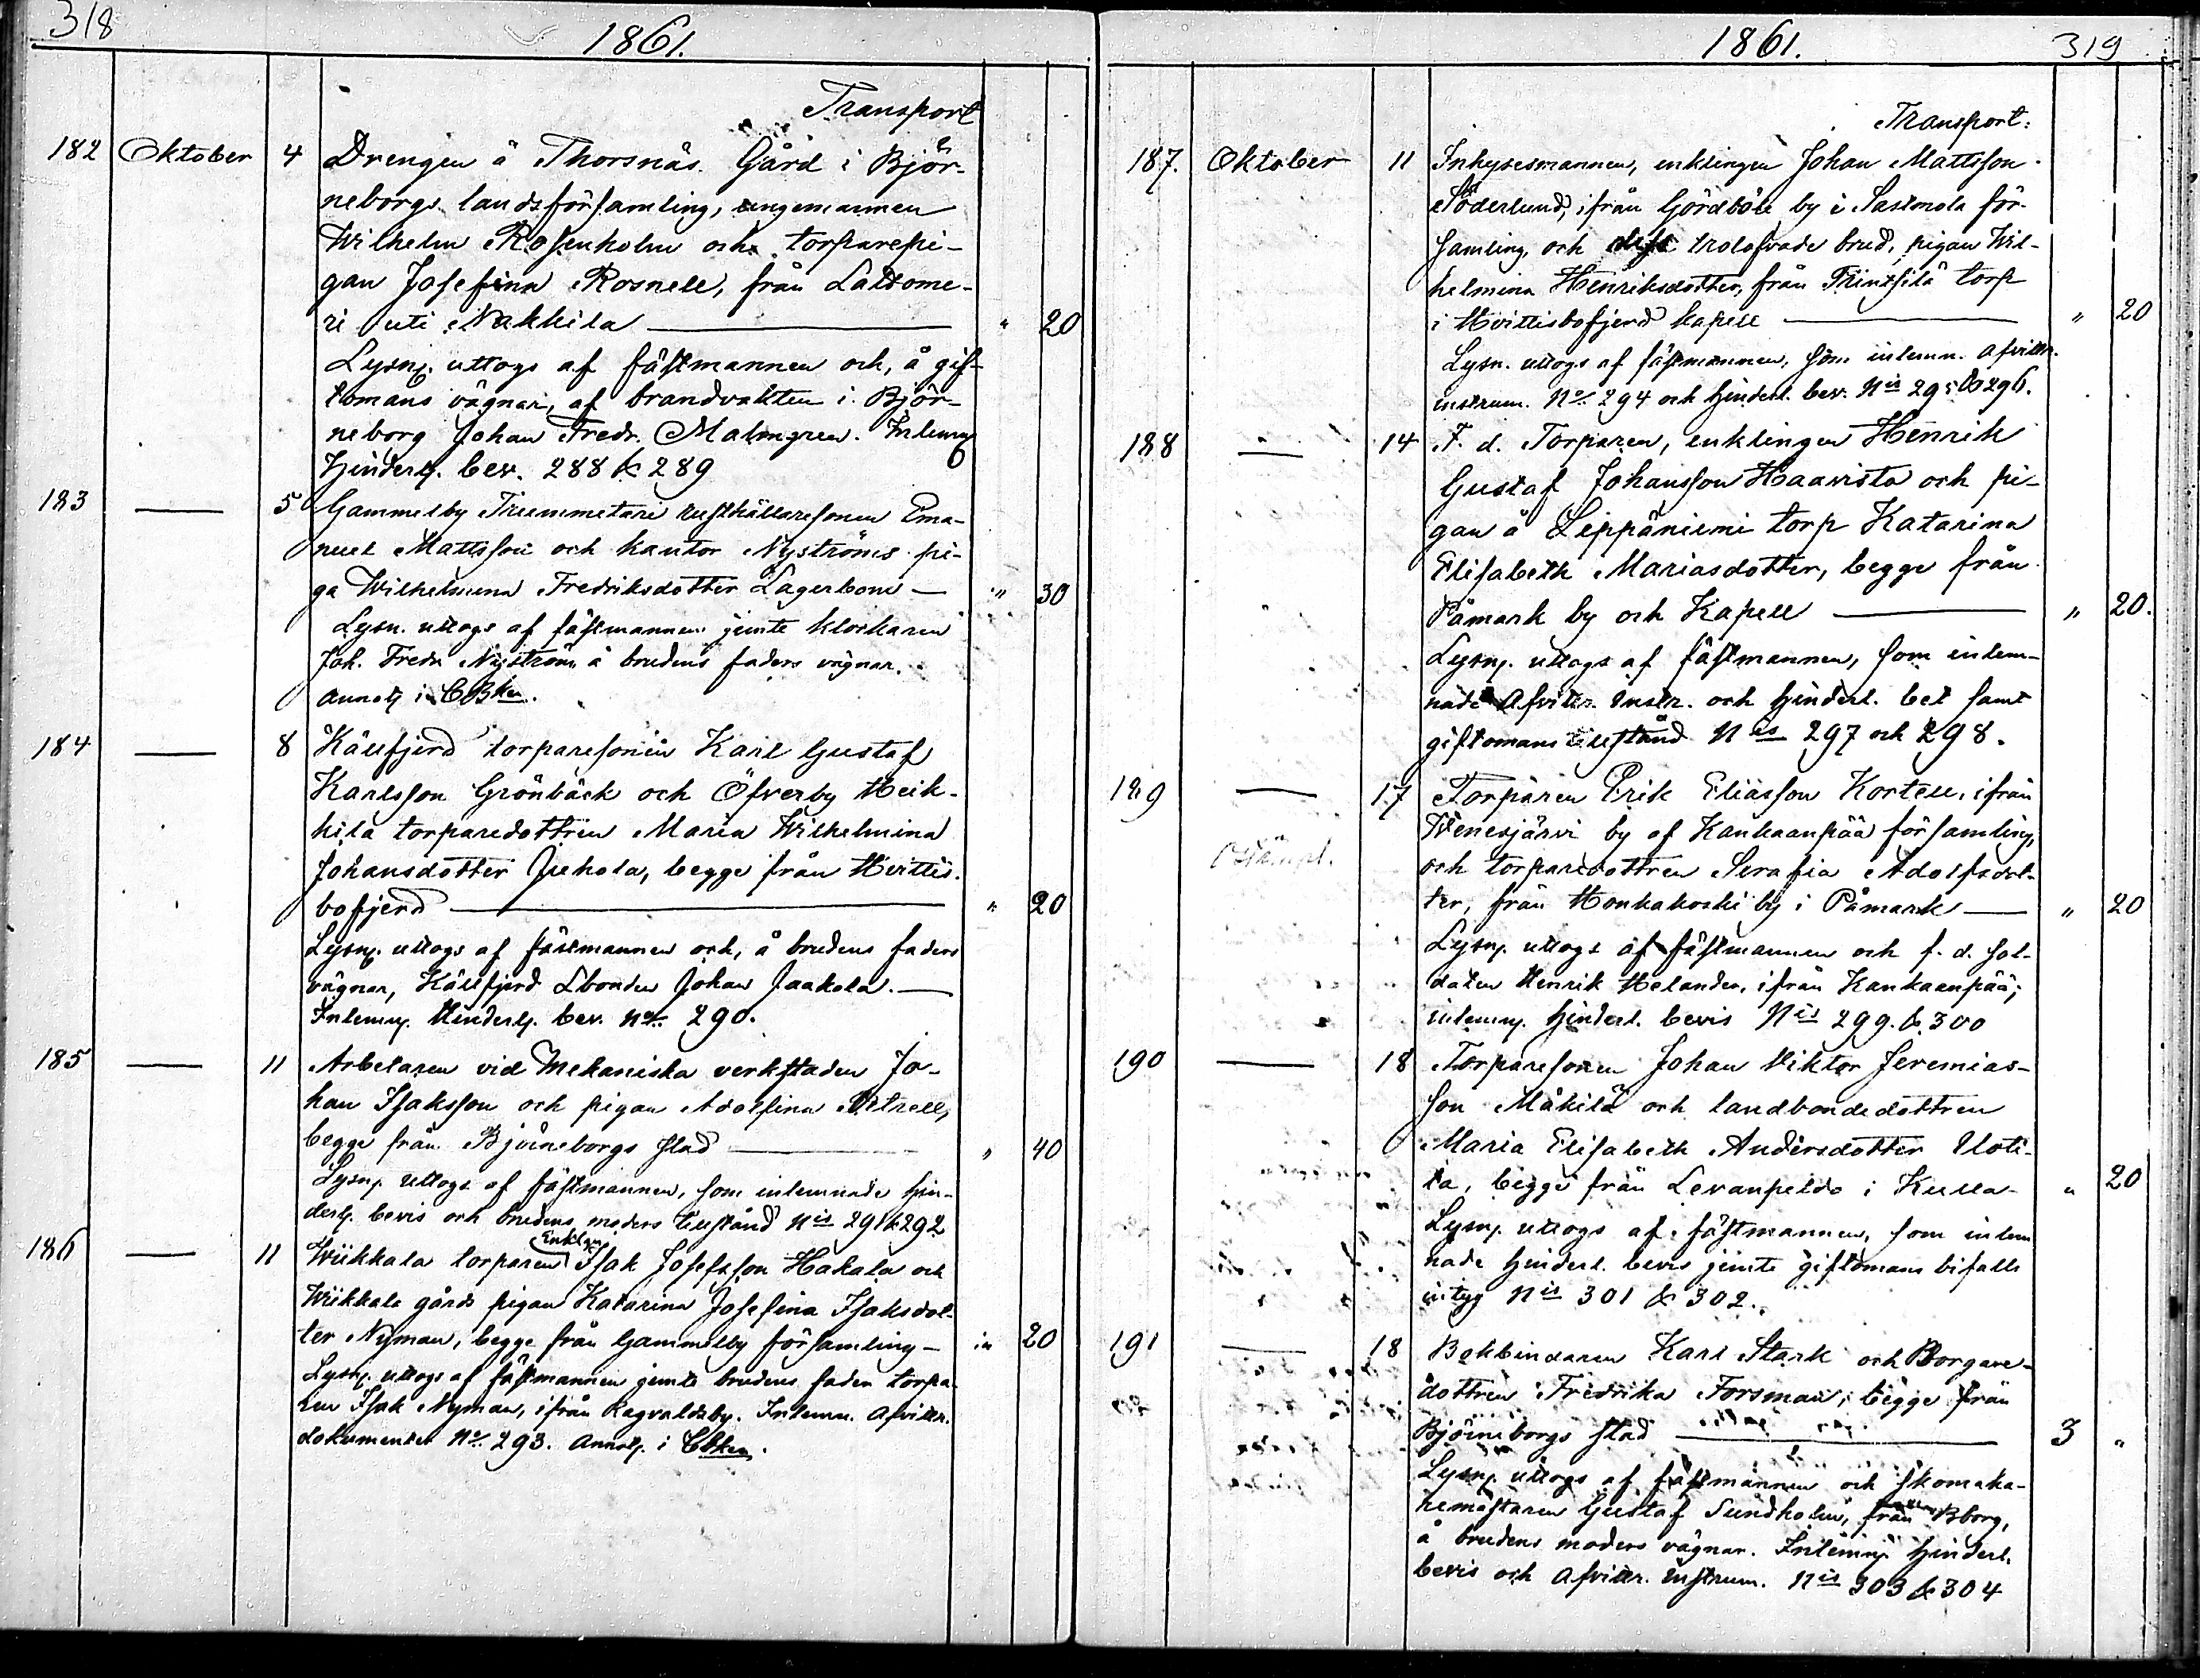 318
1861.
Transport
182 Oktober 4 Drengen å Thorsnäs Gård i Björ-
neborgs landsförsamling, ungemannen
Wilhelm Rosenholm och torparepi-
gan Josefina Rosnell, från Lattome-
ri uti Nakkila — " 20
Lysn. uttogs af fästmannen och, å gif-
tomans vägnar, af brandvakten i Björ-
neborg Johan Fredr. Malmgren. Inlemn
Hindersl. bev. 288 & 289
183 — 5 Gammelby Trummetari rusthållaresonen Ema-
nuel Mattsson och kantor Nyströms pi-
ga Wilhelmina Fredriksdotter Lagerbom — " 30
Lysn. uttogs af fästmannen jemte klockaren
Joh. Fredr Nyström å brudens faders vägnar.
Annot. i CBken.
184 — 8 Källfjerd torparesonen Karl Gustaf
Karlsson Grönbäck och Öfverby Heik-
kilä torparedottren Maria Wilhelmina
Johansdotter Juhola, begge från Hvittis-
bofjerd — " 20
Lysn. uttogs af fästmannen och, å brudens faders
vägnar, Källfjerd Lbonden Johan Jaakola. —
Inlemn. Hindersl. bev. No. 290.
185 — 11 Arbetaren vid Mekaniska verkstaden Jo-
han Isaksson och pigan Adolfina Petrell,
begge från Björneborgs stad — " 40
Lysn. uttogs af fästmannen, som inlemnade hin-
dersl. bevis och brudens moders tillstånd Nis 291 & 292
186 — 11 Wiikkala torparen Enkl. Isak Josefsson Hakala och
Wiikkala gårds pigan Katarina Josefina Isaksdot-
ter Nyman, begge från Gammelby församling — " 20
Lysn. uttogs af fästmannen jemte brudens fader torpa-
ren Isak Nyman, ifrån Ragvaldsby. Inlemn. Afvittr.
dokumentet No. 293. Annot. i CBken.
1861.
319
Transport:
187. Oktober 11 Inhysesmannen, enklingen Johan Mattsson
Söderlund, ifrån Gördböle by i Sastmola för-
samling, och dess trolofvade brud, pigan Wil-
helmina Henriksdotter, från torp
i Hvittisbofjerd kapell — " 20
Lysn. uttogs af fästmannen, som inlemn. Afvittr.
instrum. No. 294 och hindersl. bev. Nis 295 & 296.
188 — 14 F. d. Torparen, enklingen Henrik
Gustaf Johansson Haavisto och pi-
gan å Leppäniemi torp Katarina
Elisabeth Mariasdotter, begge från
Påmark by och Kapell — " 20.
Lysn. uttogs af fästmannen, som inlem-
nade Afvittr. Instr. och hindersl. bet samt
giftomans tillstånd Nis 297 och 298.
189 — 17 Torparen Erik Eliasson Kortell, ifrån
Wenesjärvi by af Kankaanpää församling,
och torparedottren Serafia Adolfsdot-
ter, från Honkakoski by i Påmark — " 20
Lysn. uttogs af fästmannen och f. d. sol-
daten Henrik Helander, ifrån Kankaanpää;
inlemn. hindersl. bevis Nis 299. & 300
190 — 18 Torparesonen Johan Viktor Jeremias-
son Mäkilä och landbondedottren
Maria Elisabeth Andersdotter Uoti-
la, begge från Levanpelto i Kulla — " 20
Lysn. uttogs af fästmannen, som inlem
nade hindersl. bevis jemte giftomans bifalls
intyg Nis 301 & 302.
191 — 18 Bokbindaren Karl Stark och Borgare-
dottren Fredrika Forsman, begge från
Björneborgs stad — 3 "
Lysn. uttogs af fästmannen och skomaka-
remästaren Gustaf Sundholm, från Bborg,
å brudens moders vägnar. Inlemn. hindersl.
bevis och Afvittr. instrum. Nis 303 & 304